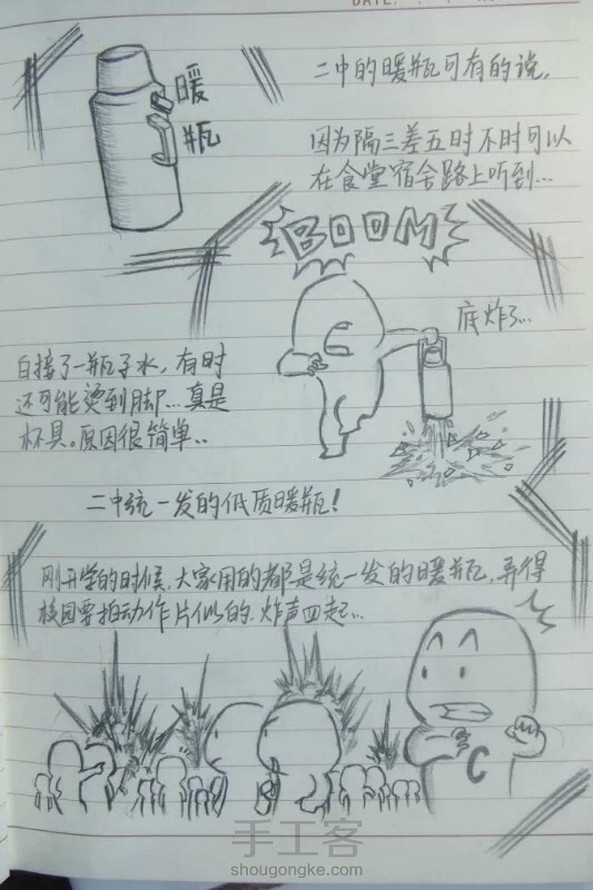 DATE.
暖
瓶
二中的暖瓶可有的说,
因为隔三差五时不时可以
在食堂宿舍路上听到…
BOOM
底炸了…
白接了一瓶子水,有时
还可能烫到脚…真是
杯具。原因很简单..
二中统一发的低质暖瓶!
刚开学的时候,大家用的都是统一发的暖瓶,弄得
校园要拍动作片似的,炸声四起…
C
手工客
shougongke.com